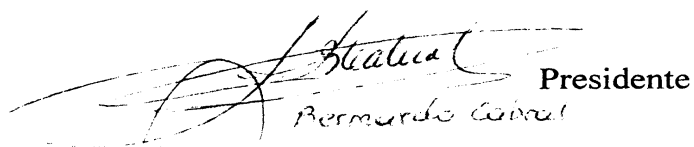 Presidente
Bernardo Cabral